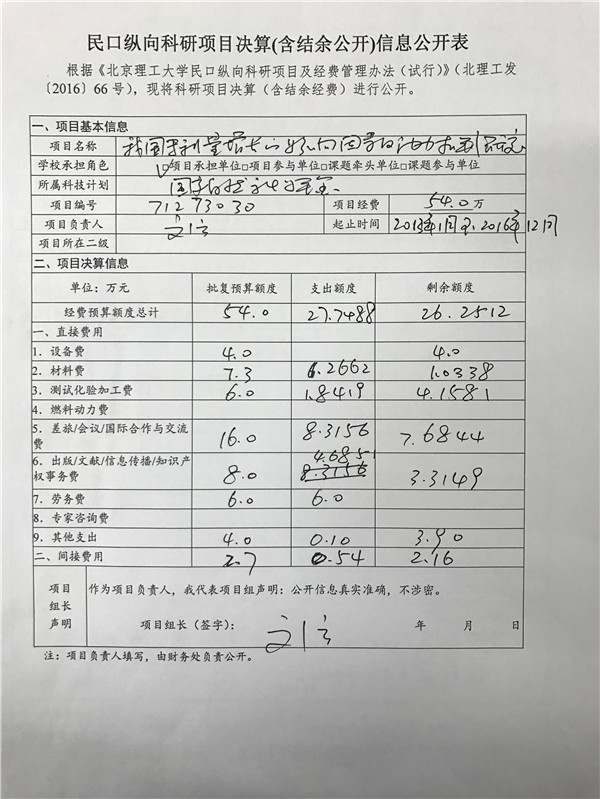 民口纵向科研项目决算(含结余公开)信息公开表
根据《北京理工大学民口纵向科研项目及经费管理办法（试行）》（北理工发
〔2016〕66 号），现将科研项目决算（含结余经费）进行公开。
一、项目基本信息
项目名称
学校承担角色 项目承担单位□项目参与单位□课题牵头单位□课题参与单位
所属科技计划
项目编号 71273030 项目经费 54.0万
项目负责人 起止时间 2013年1月至2016年12月
项目所在二级
二、项目决算信息
单位：万元 批复预算额度 支出额度 剩余额度
经费预算额度总计 54.0 27.7488 26.2512
一、直接费用
1．设备费 4.0 4.0
2．材料费 7.3 6.2662 1.0338
3．测试化验加工费 6.0 1.8419 4.1581
4．燃料动力费
5．差旅/会议/国际合作与交流
费 16.0 8.3156 7.6844
6．出版/文献/信息传播/知识产
权事务费 8.0 4.6851 8.3156 3.3149
7．劳务费 6.0 6.0
8．专家咨询费
9．其他支出 4.0 0.10 3.90
二、间接费用 2.7 0.54 2.16
项目
组长
声明
作为项目负责人，我代表项目组声明：公开信息真实准确，不涉密。
项目组长（签字）： 年 月 日
注：项目负责人填写，由财务处负责公开。